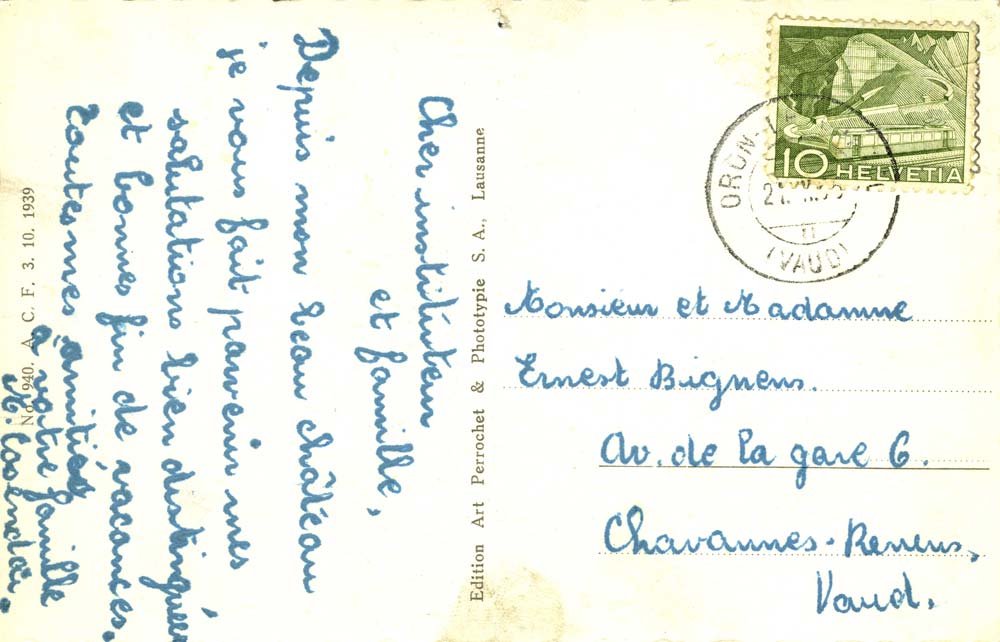 Cher instituteur
et famille,
Depuis mon beau château
je vous fait parvenir mes
salutations bien distinguées
et bonnes fin de vacances.
Toutes mes amitiés
à votre famille
No 940. A. C. F. 3. 10. 1939
Edition Art Perrochet & Phototypie S. A., Lausanne
10 HELVETIA
ORON-
(VAUD)
Monsieur et Madamme
Ernest Bignens.
Av. de la gare 6.
Chavannes-Renens,
Vaud.